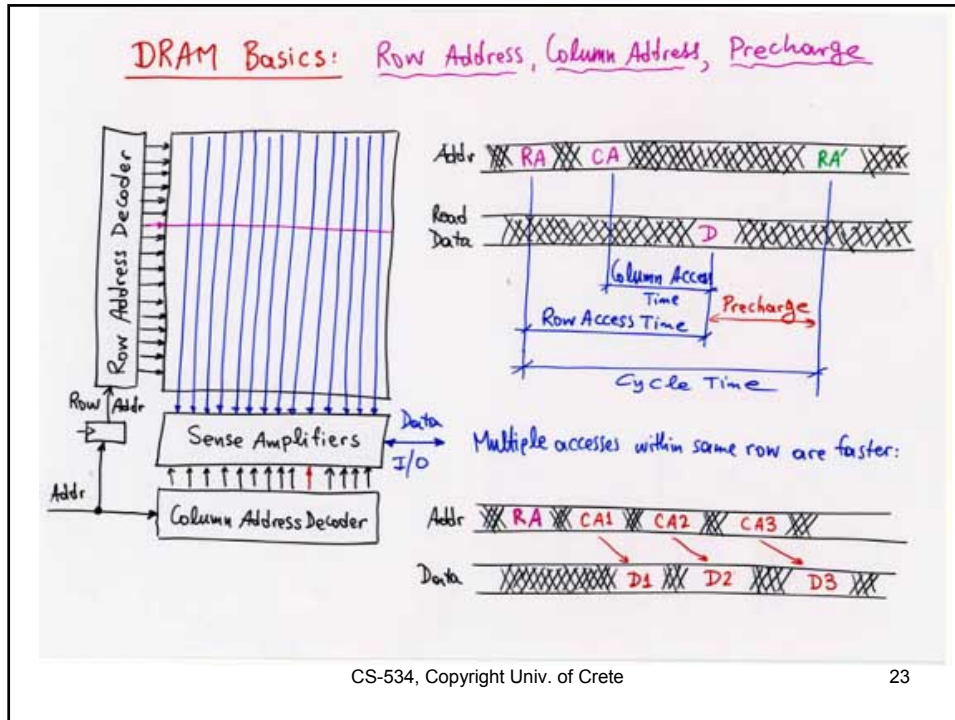 DRAM Basics: Row Address, Column Address, Precharge
Row Address Decoder
Row Addr
Addr
Sense Amplifiers
Column Address Decoder
Data
I/O
Addr RA CA RA'
Read
Data D
Column Access
Time
Precharge
Row Access Time
Cycle Time
Multiple accesses within same row are faster:
Addr RA CA1 CA2 CA3
Data D1 D2 D3
CS-534, Copyright Univ. of Crete 23